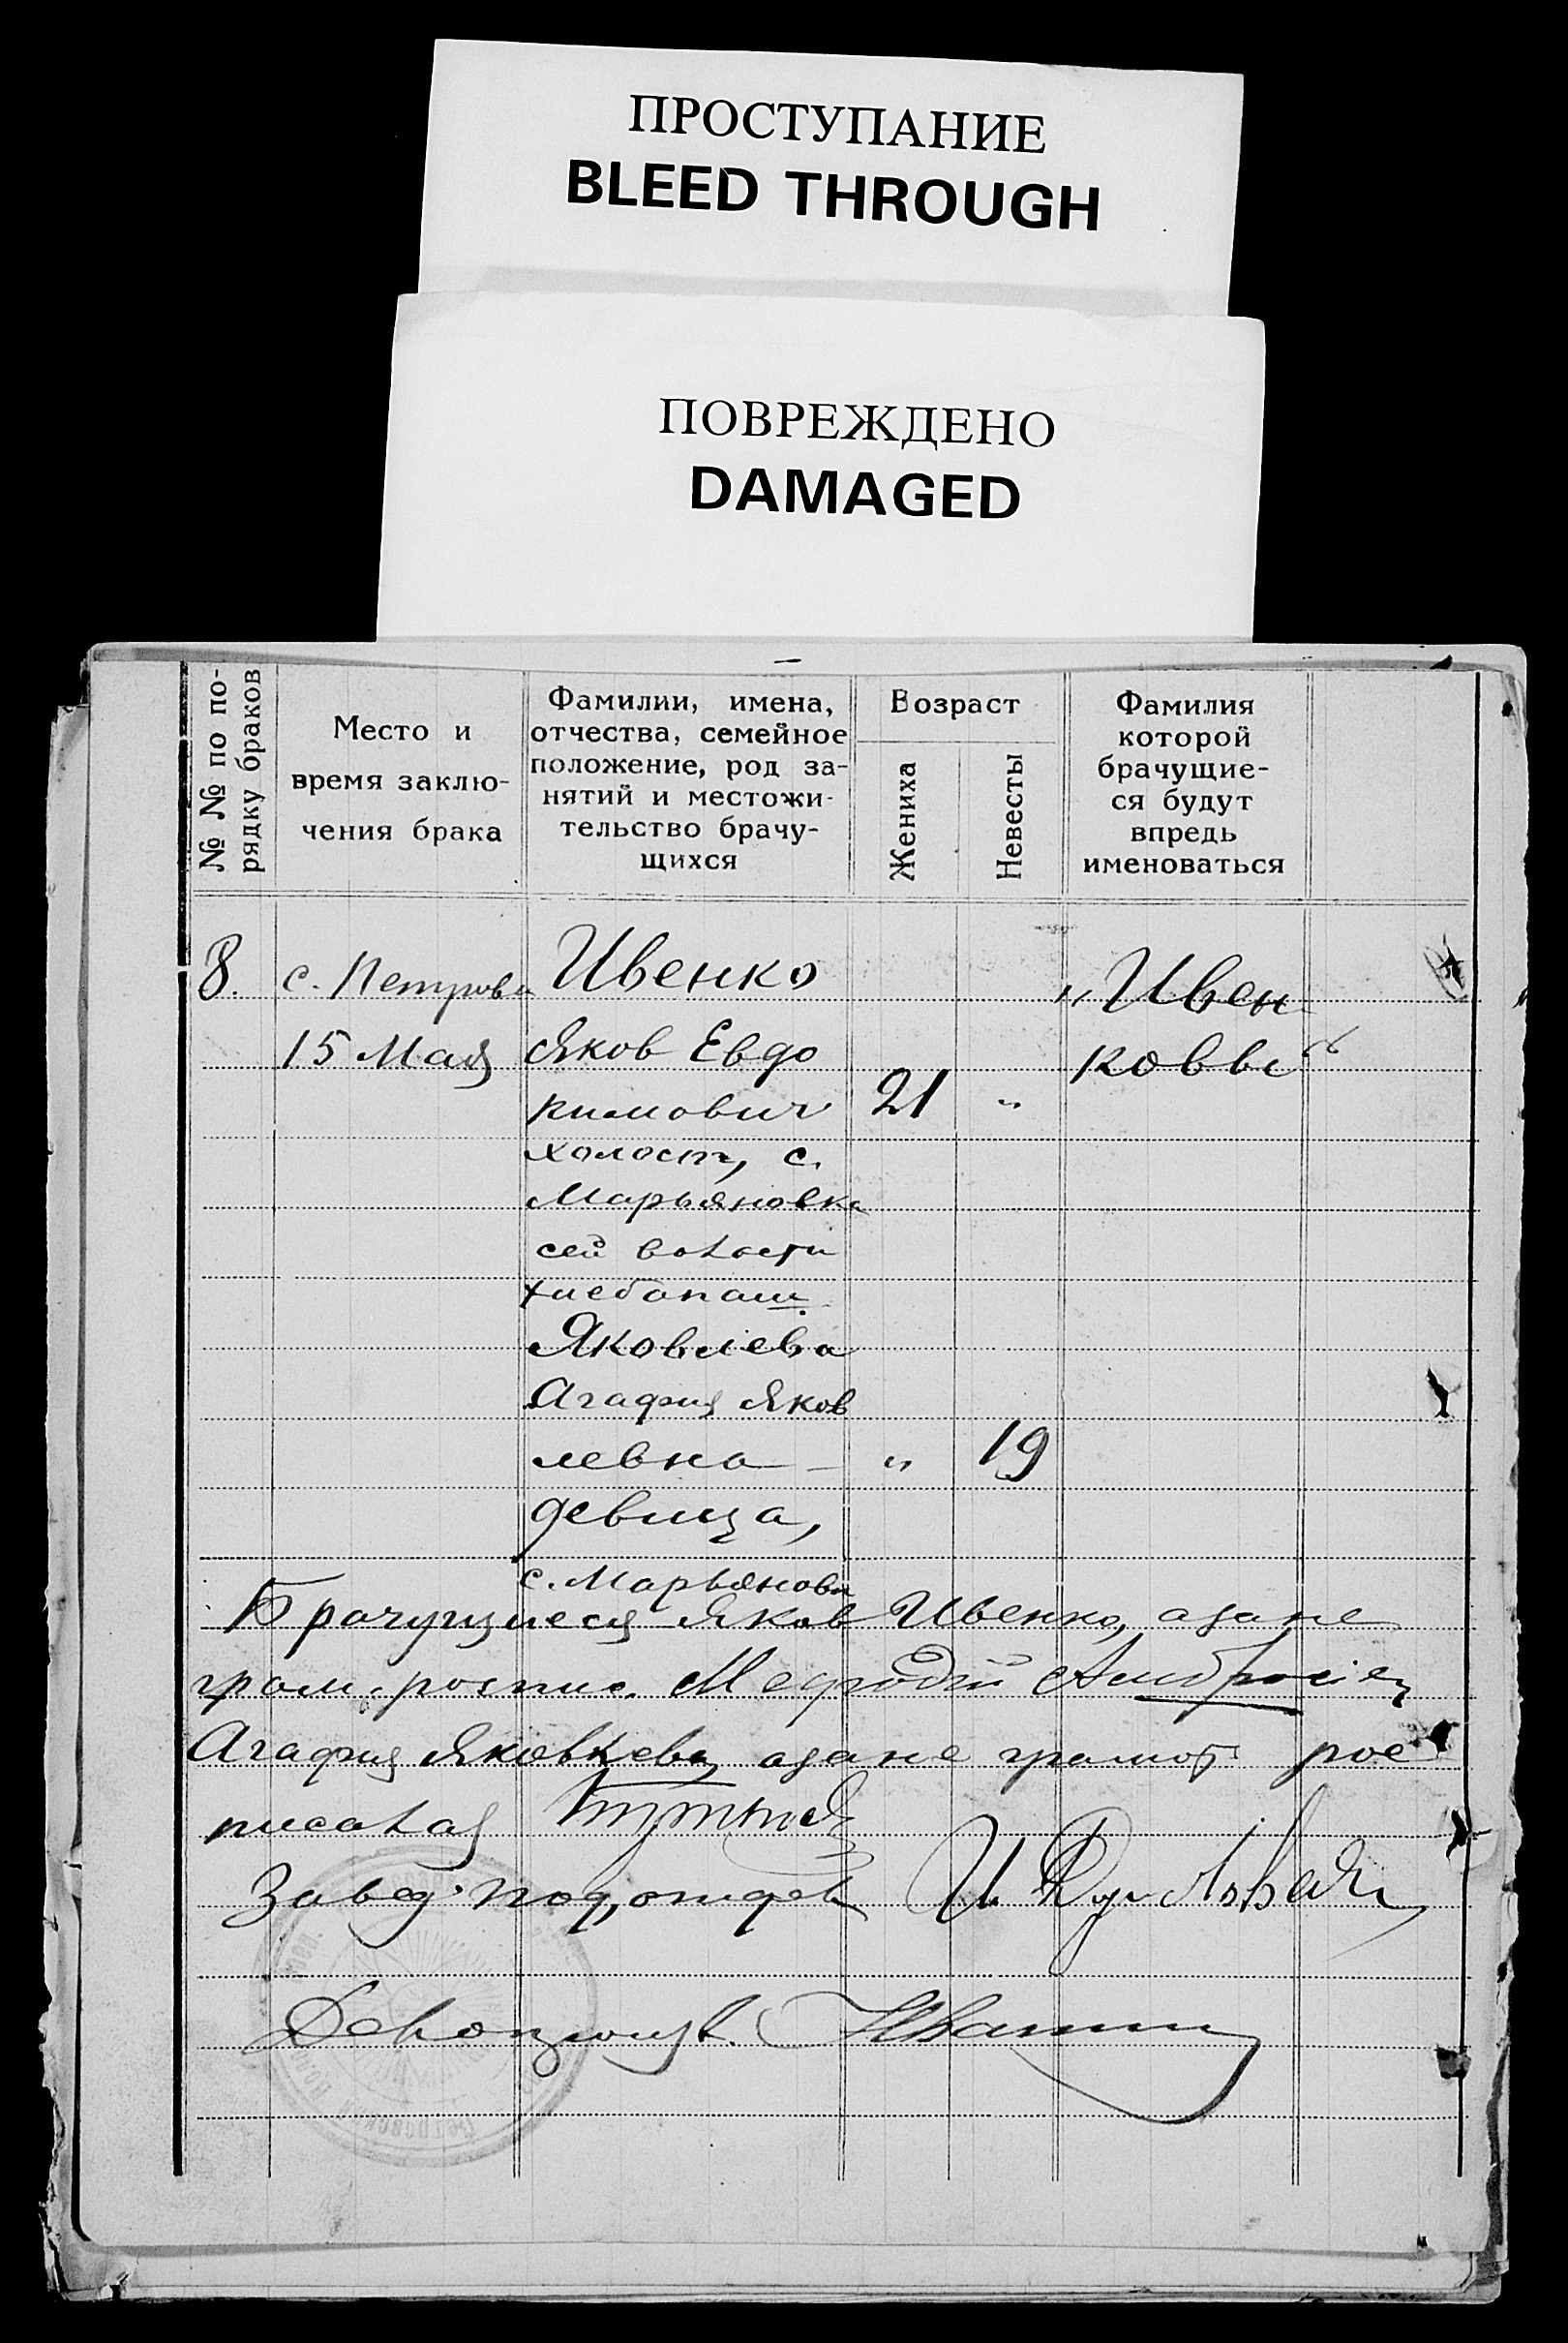 ПРОСТУПАНИЕ
BLEED THROUGH
ПОВРЕЖДЕНО
DAMAGED
№ № по по-
рядку браков
Место и
время заклю-
чения брака
Фамилии, имена,
отчества, семейное
положение, род за-
нятий и местожи-
тельство брачу-
щихся
Возраст
Жениха
Невесты
Фамилия
которой
брачущие-
ся будут
впредь
именоваться
8. с. Петровка
15 Мая
Ивенко
Яков Евдо
кимович
холост, с.
Марьяновка
сей волости
хлебопаш.
21 "
Яковлева
Агафия Яков
левна –
девица,
с. Марьяновк
" 19
"Ивен
ковы"
Брачущиеся Яков Ивенко, а за не
грам. роспис. Мефодій
Агафия Яковлева а за не грамот рос
писался
Завед. под,отдел И